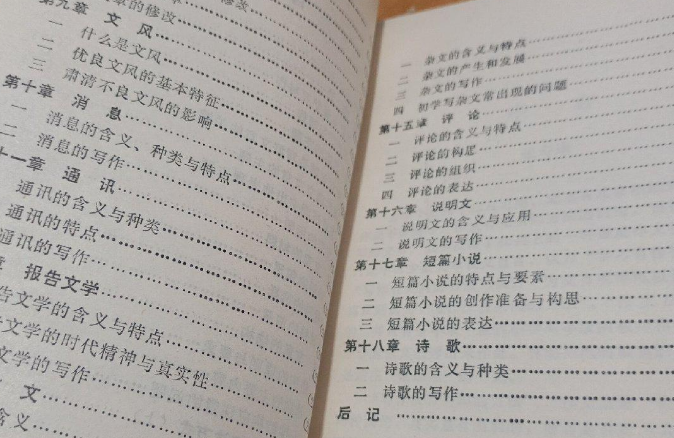 的修改
第九章 文 风
一 什么是文风
二 优良文风的基本特征
三 肃清不良文风的影响
第十章 消 息
一 消息的含义、种类与特点
二 消息的写作
十一章 通 讯
通讯的含义与种类
通讯的特点
通讯的写作
报告文学
告文学的含义与特点
文学的时代精神与真实性
文学的写作
文
含义
一 杂文的含义与特点
二 杂文的产生和发展
三 杂文的写作
四 初学写杂文常出现的问题
第十五章 评 论
一 评论的含义与特点
二 评论的构思
三 评论的组织
四 评论的表达
第十六章 说明文
一 说明文的含义与应用
二 说明文的写作
第十七章 短篇小说
一 短篇小说的特点与要素
二 短篇小说的创作准备与构思
三 短篇小说的表达
第十八章 诗 歌
一 诗歌的含义与种类
二 诗歌的写作
后 记